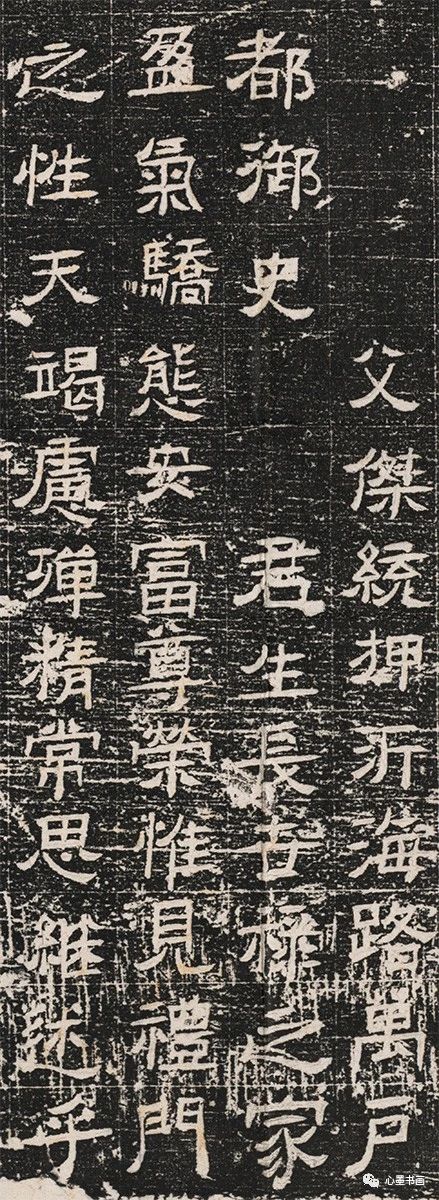 父傑統押沂海路萬户
都御史 君生長世祿之家
盈氣驕態安富尊榮惟見禮門
之性天竭慮殫精常思継述乎
心墨书画